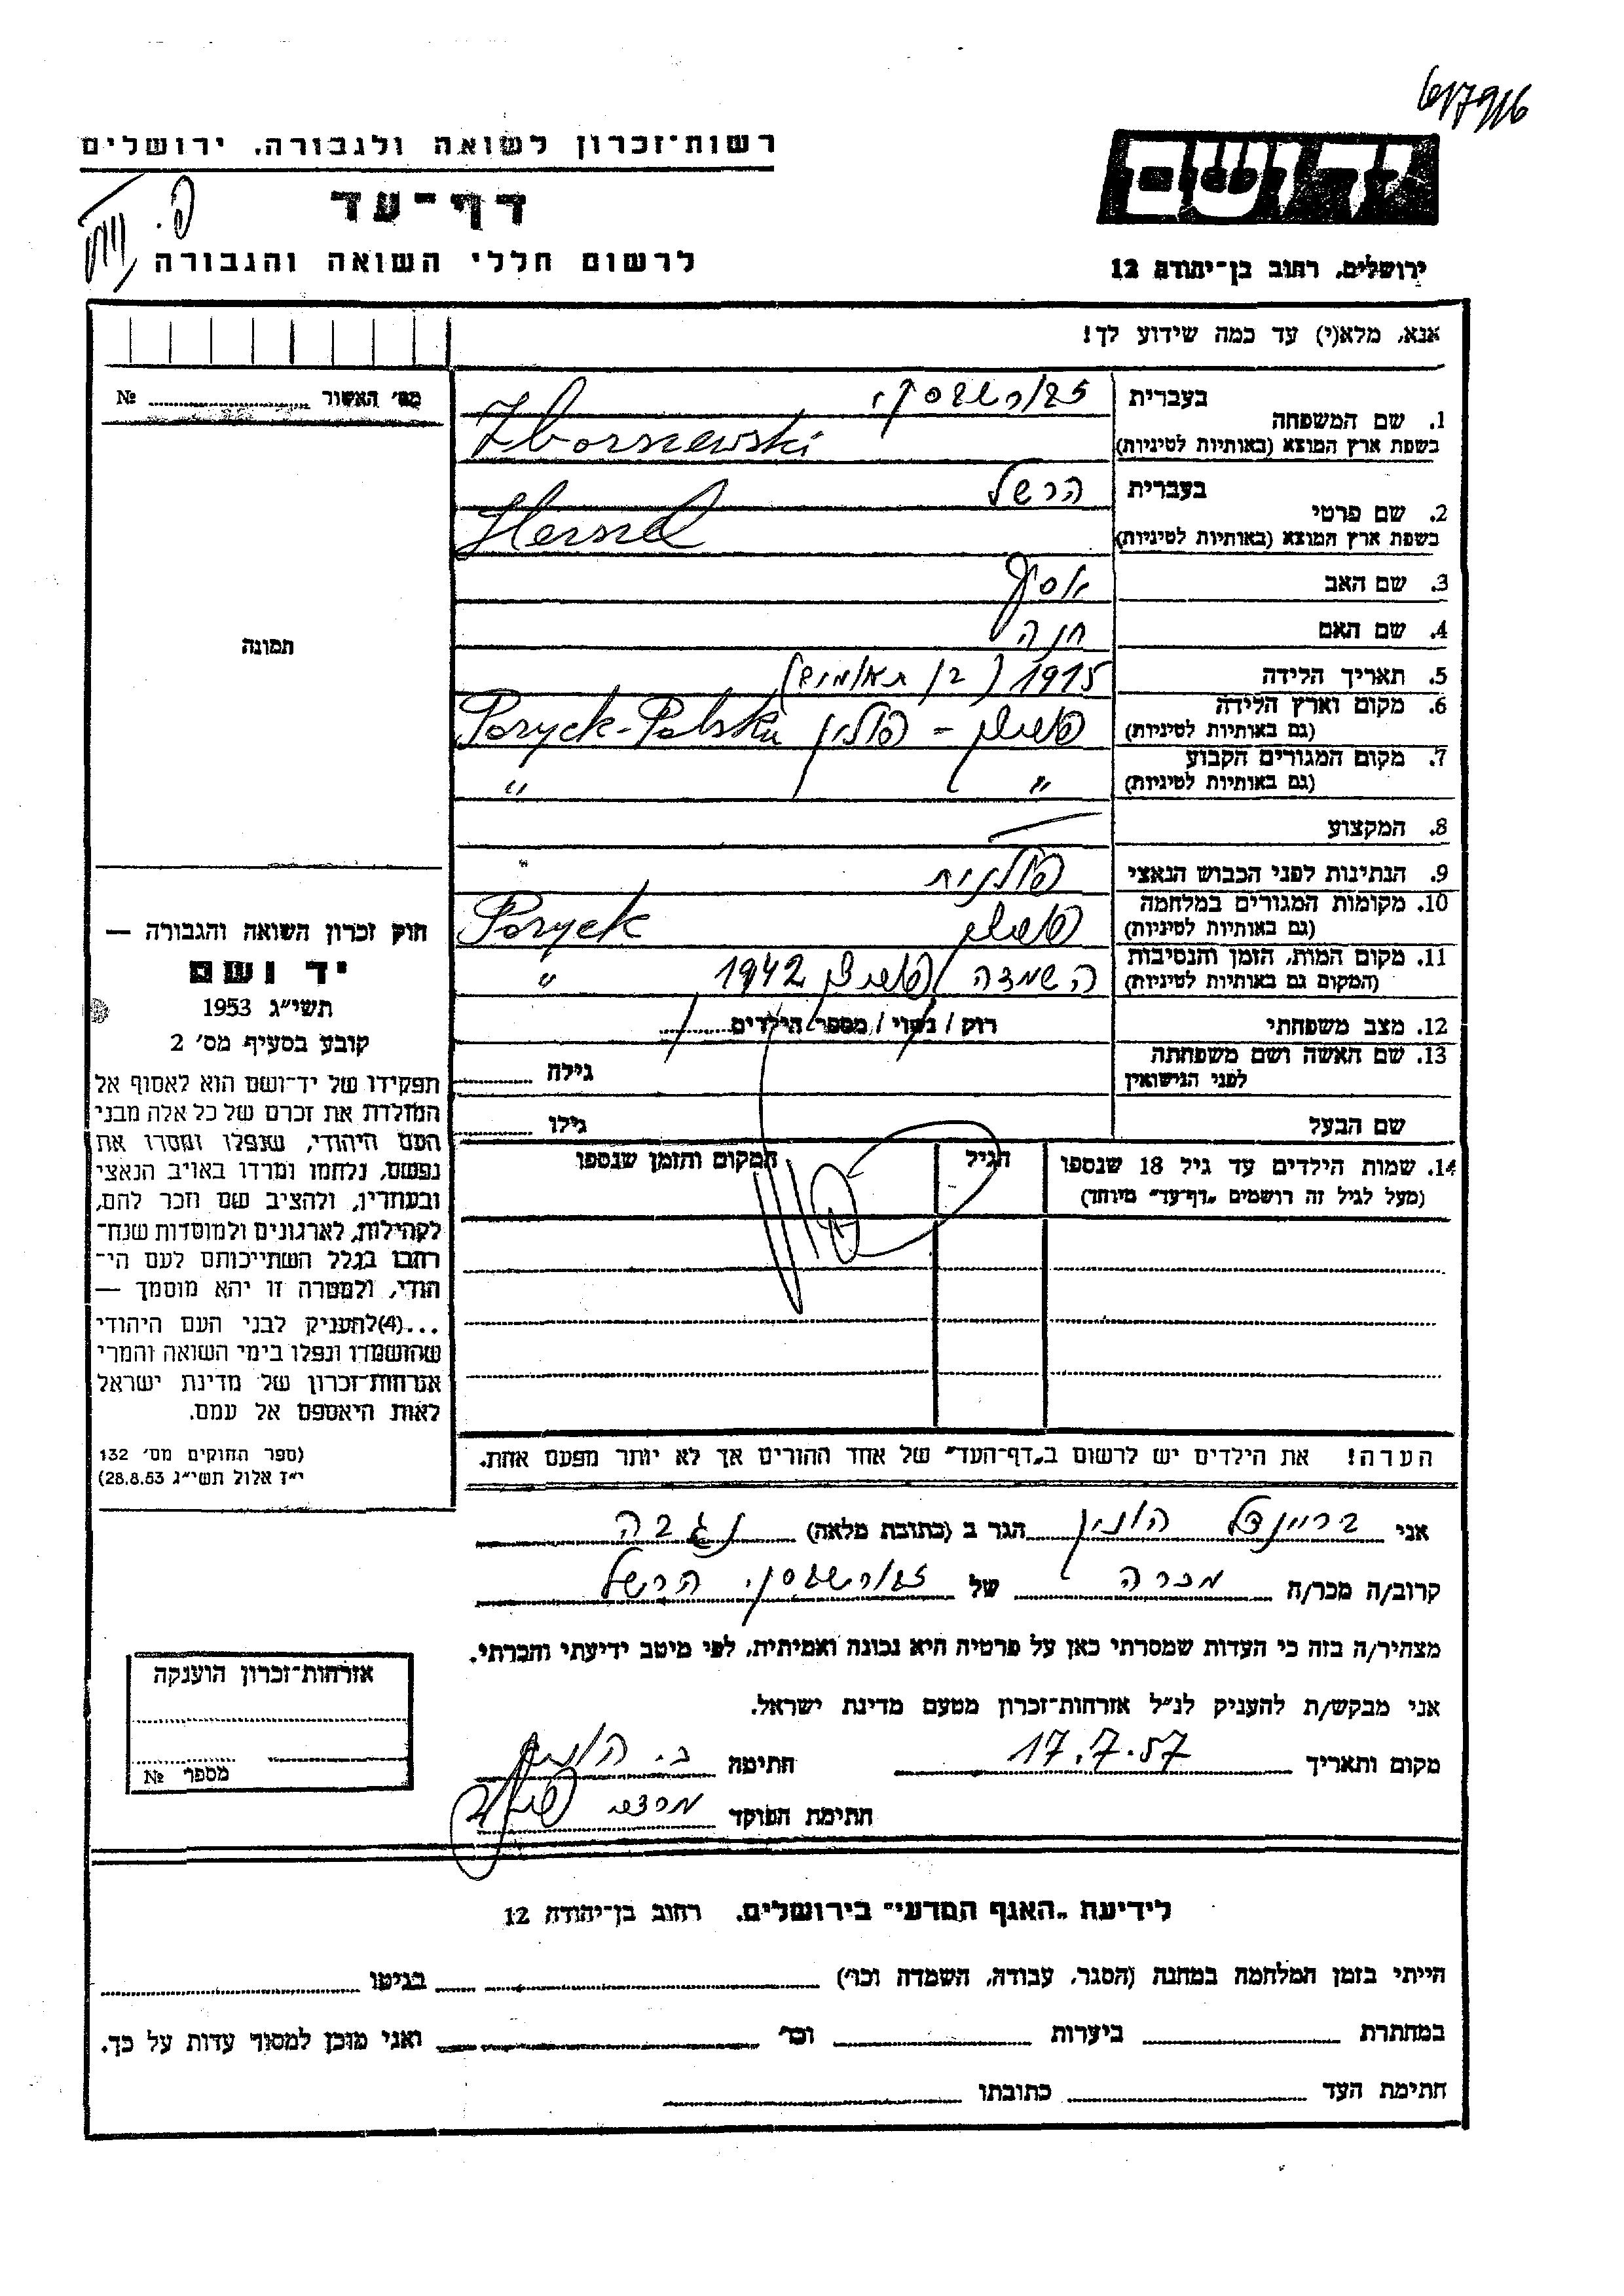 רשות־זכרון לשואה ולגבורה, ירושלים
דף־עד
לרשום חללי השואה והגבורה
ירושלים, רחוב בן־יהודה 12
אנא, מלא(י) עד כמה שידוע לך!
מס׳ האשור № 
תמונה
1. שם המשפחה
בעברית
בשפת ארץ המוצא (באותיות לטיניות) Zborszewski
2. שם פרטי
בעברית הרשל
בשפת ארץ המוצא (באותיות לטיניות) Herszel
3. שם האב יוסף
4. שם האם חנה
5. תאריך הלידה 1915
6. מקום וארץ הלידה פולין Poryck-Polska
(גם באותיות לטיניות)
7. מקום המגורים הקבוע " "
(גם באותיות לטיניות)
8. המקצוע —
9. הנתינות לפני הכבוש הנאצי פולנית
10. מקומות המגורים במלחמה Poryck
(גם באותיות לטיניות)
11. מקום המות, הזמן והנסיבות השמדה 1942 "
(המקום גם באותיות לטיניות)
12. מצב משפחתי רוק / נשוי / מספר הילדים
13. שם האשה ושם משפחתה
לפני הנישואין
גילה
שם הבעל גילו
14. שמות הילדים עד גיל 18 שנספו הגיל המקום והזמן שנספו
(מעל לגיל זה רושמים „דף־עד״ מיוחד)
הערה! את הילדים יש לרשום ב„דף־העד״ של אחד ההורים אך לא יותר מפעם אחת.
חוק זכרון השואה והגבורה —
יד ושם
תשי״ג 1953
קובע בסעיף מס׳ 2
תפקידו של יד־ושם הוא לאסוף אל
המולדת את זכרם של כל אלה מבני
העם היהודי, שנפלו ומסרו את
נפשם, נלחמו ומרדו באויב הנאצי
ובעוזריו, ולהציב שם וזכר להם,
לקהילות, לארגונים ולמוסדות שנח־
רבו בגלל השתייכותם לעם הי־
הודי, ולמטרה זו יהא מוסמך —
...(4)להעניק לבני העם היהודי
שהושמדו ונפלו בימי השואה והמרי
אזרחות־זכרון של מדינת ישראל
לאות היאספם אל עמם.
(ספר החוקים מס׳ 132
י״ז אלול תשי״ג 28.8.53)
אני בריינדל הגר ב (כתובת מלאה) נגבה
קרוב/ה מכר/ה מכרה של הרשל
מצהיר/ה בזה כי העדות שמסרתי כאן על פרטיה היא נכונה ואמיתית, לפי מיטב ידיעתי והכרתי.
אני מבקש/ת להעניק לנ״ל אזרחות־זכרון מטעם מדינת ישראל.
מקום ותאריך 17.7.57 חתימה
חתימת הפוקד
אזרחות־זכרון הוענקה
מספר №
לידיעת „האגף המדעי״ בירושלים, רחוב בן־יהודה 12
הייתי בזמן המלחמה במחנה (הסגר, עבודה, השמדה וכו׳) בגיטו
במחתרת ביערות וכו׳ ואני מוכן למסור עדות על כך.
חתימת העד כתובתו